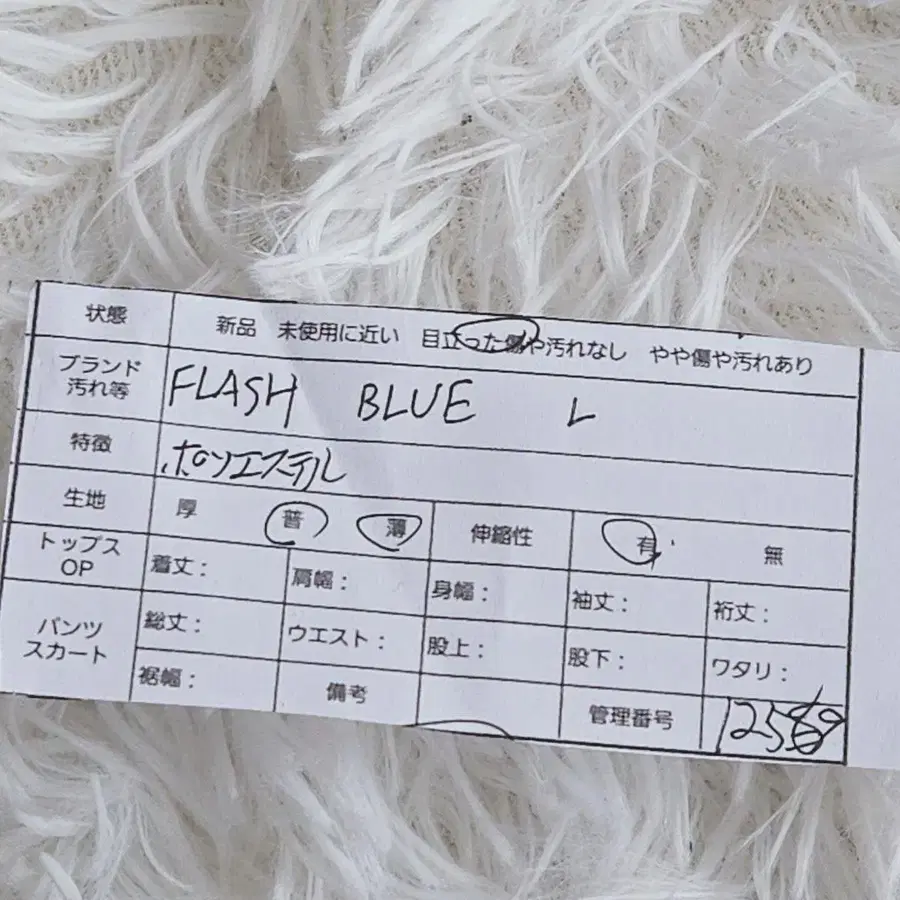 状態 新品 未使用に近い 目立った傷や汚れなし やや傷や汚れあり
ブランド 汚れ等 FLASH BLUE L
特徴 ポリエステル
生地 厚 普 薄 伸縮性 有 無
トップス OP 着丈: 肩幅: 身幅: 袖丈: 裄丈:
パンツ スカート 総丈: ウエスト: 股上: 股下: ワタリ:
裾幅: 備考 管理番号